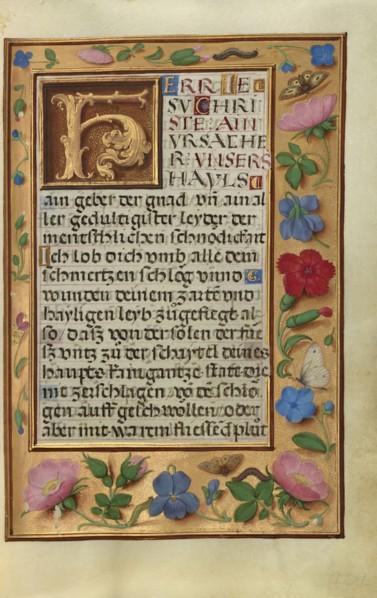 HERR IE
SV CHRI
STE AIN
VRSACHE
R VNSERS
HAYLS
ain geber der gnad / vn̄ ain al
ler gedultigister leyder der
mentschlichen schnodickait
Ich lob dich vmb alle dein
schmertzen schleg vnnd
wunden deinem zarten vnd
hayligen leyb zůgefiegt al
so / dasz von der solen der fue
sz vntz zů der schaytel deines
haupts kain gantze statt die
nit zerschlagen / vō dē schle
gen auff geschwollen / oder
aber mit warem fliessēd plůt